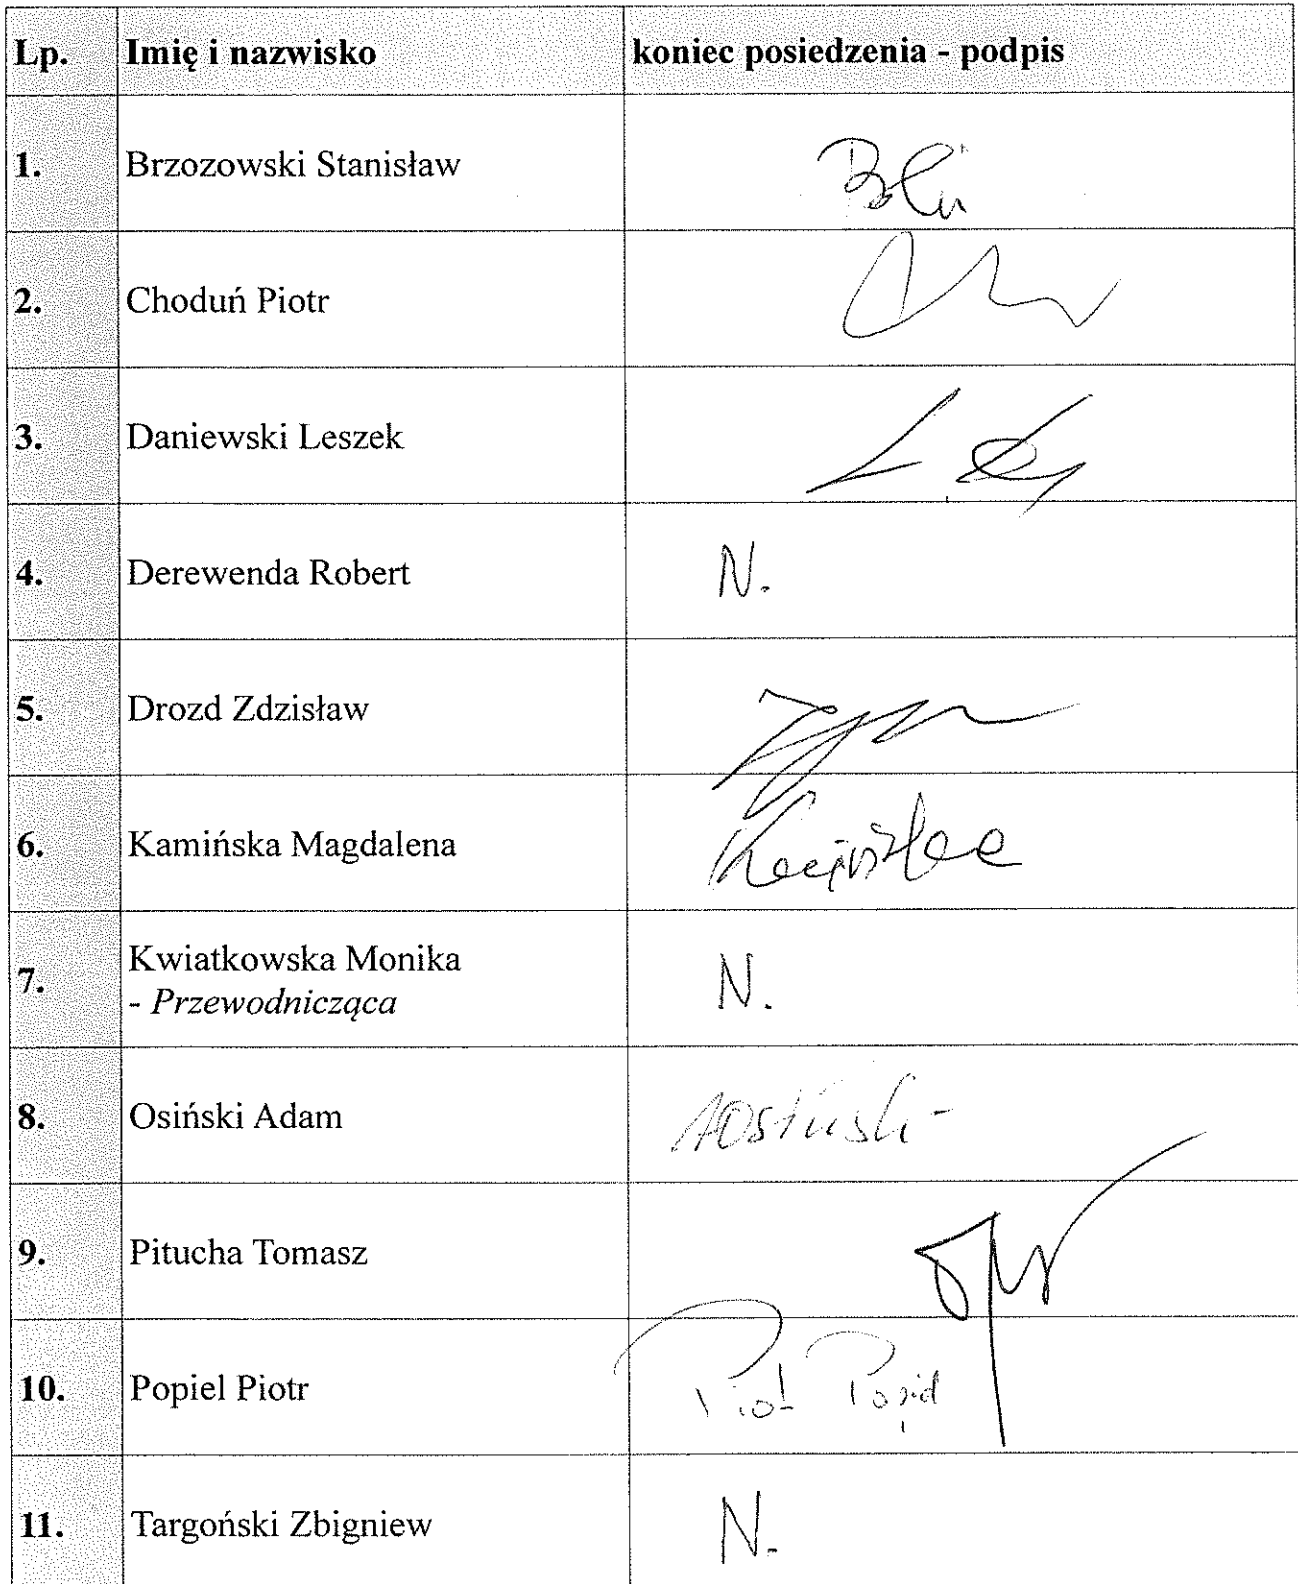 Lp. Imię i nazwisko koniec posiedzenia - podpis
1. Brzozowski Stanisław
2. Choduń Piotr
3. Daniewski Leszek
4. Derewenda Robert N.
5. Drozd Zdzisław
6. Kamińska Magdalena
7. Kwiatkowska Monika N.
- Przewodnicząca
8. Osiński Adam AOsiński
9. Pitucha Tomasz
10. Popiel Piotr Piotr Popiel
11. Targoński Zbigniew N.